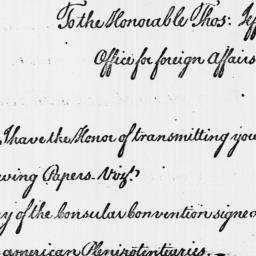 To the Honorable Thos: Jeff
Office for foreign Affairs
I have the Honor of transmitting you
wing Papers. Vizt.
y of the Consular Convention signed
american Plenipotentiaries.